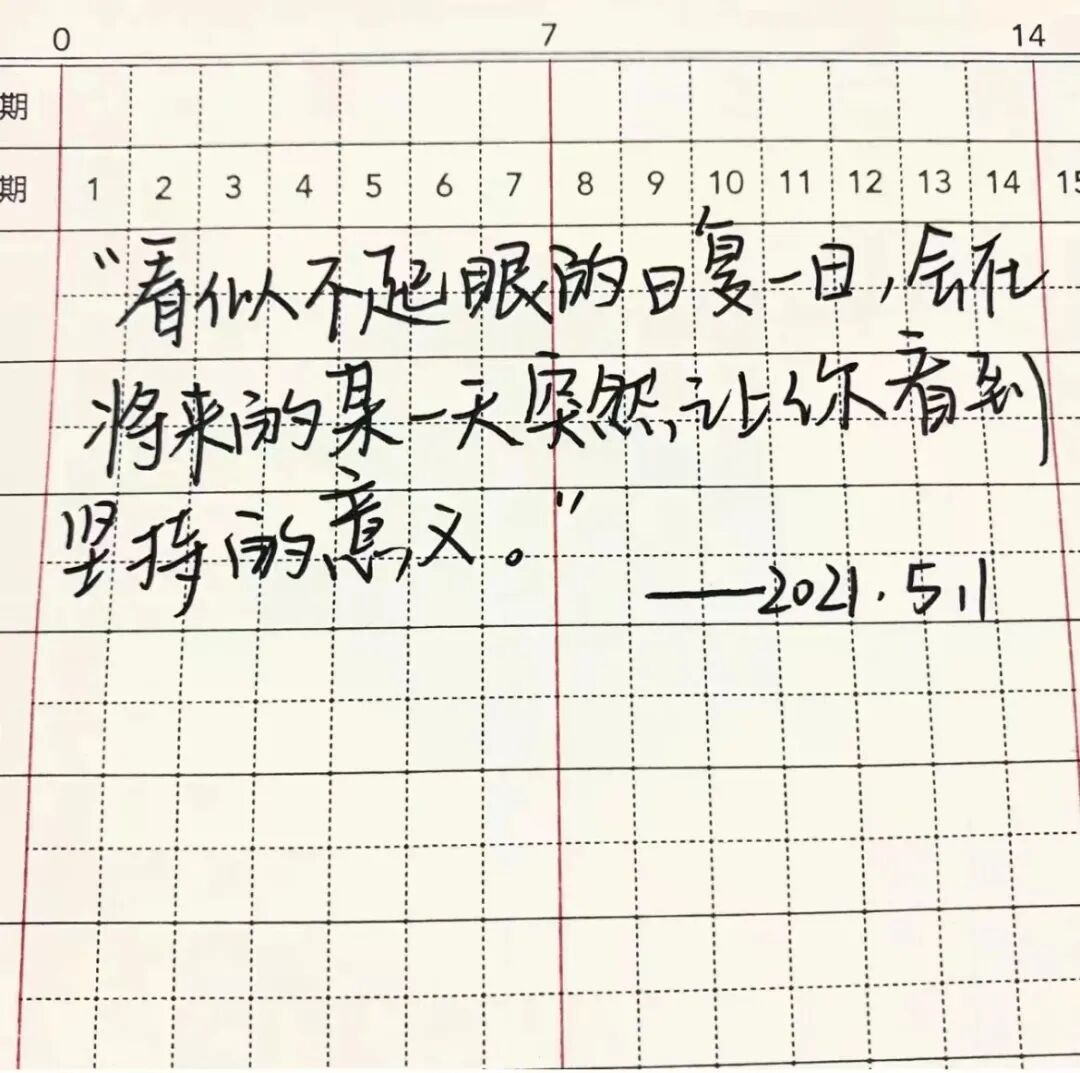 0 7 14
期
期 1 2 3 4 5 6 7 8 9 10 11 12 13 14 15
“看似不起眼的日复一日,会在
将来的某一天突然让你看到
坚持的意义。”
——2021.5.1